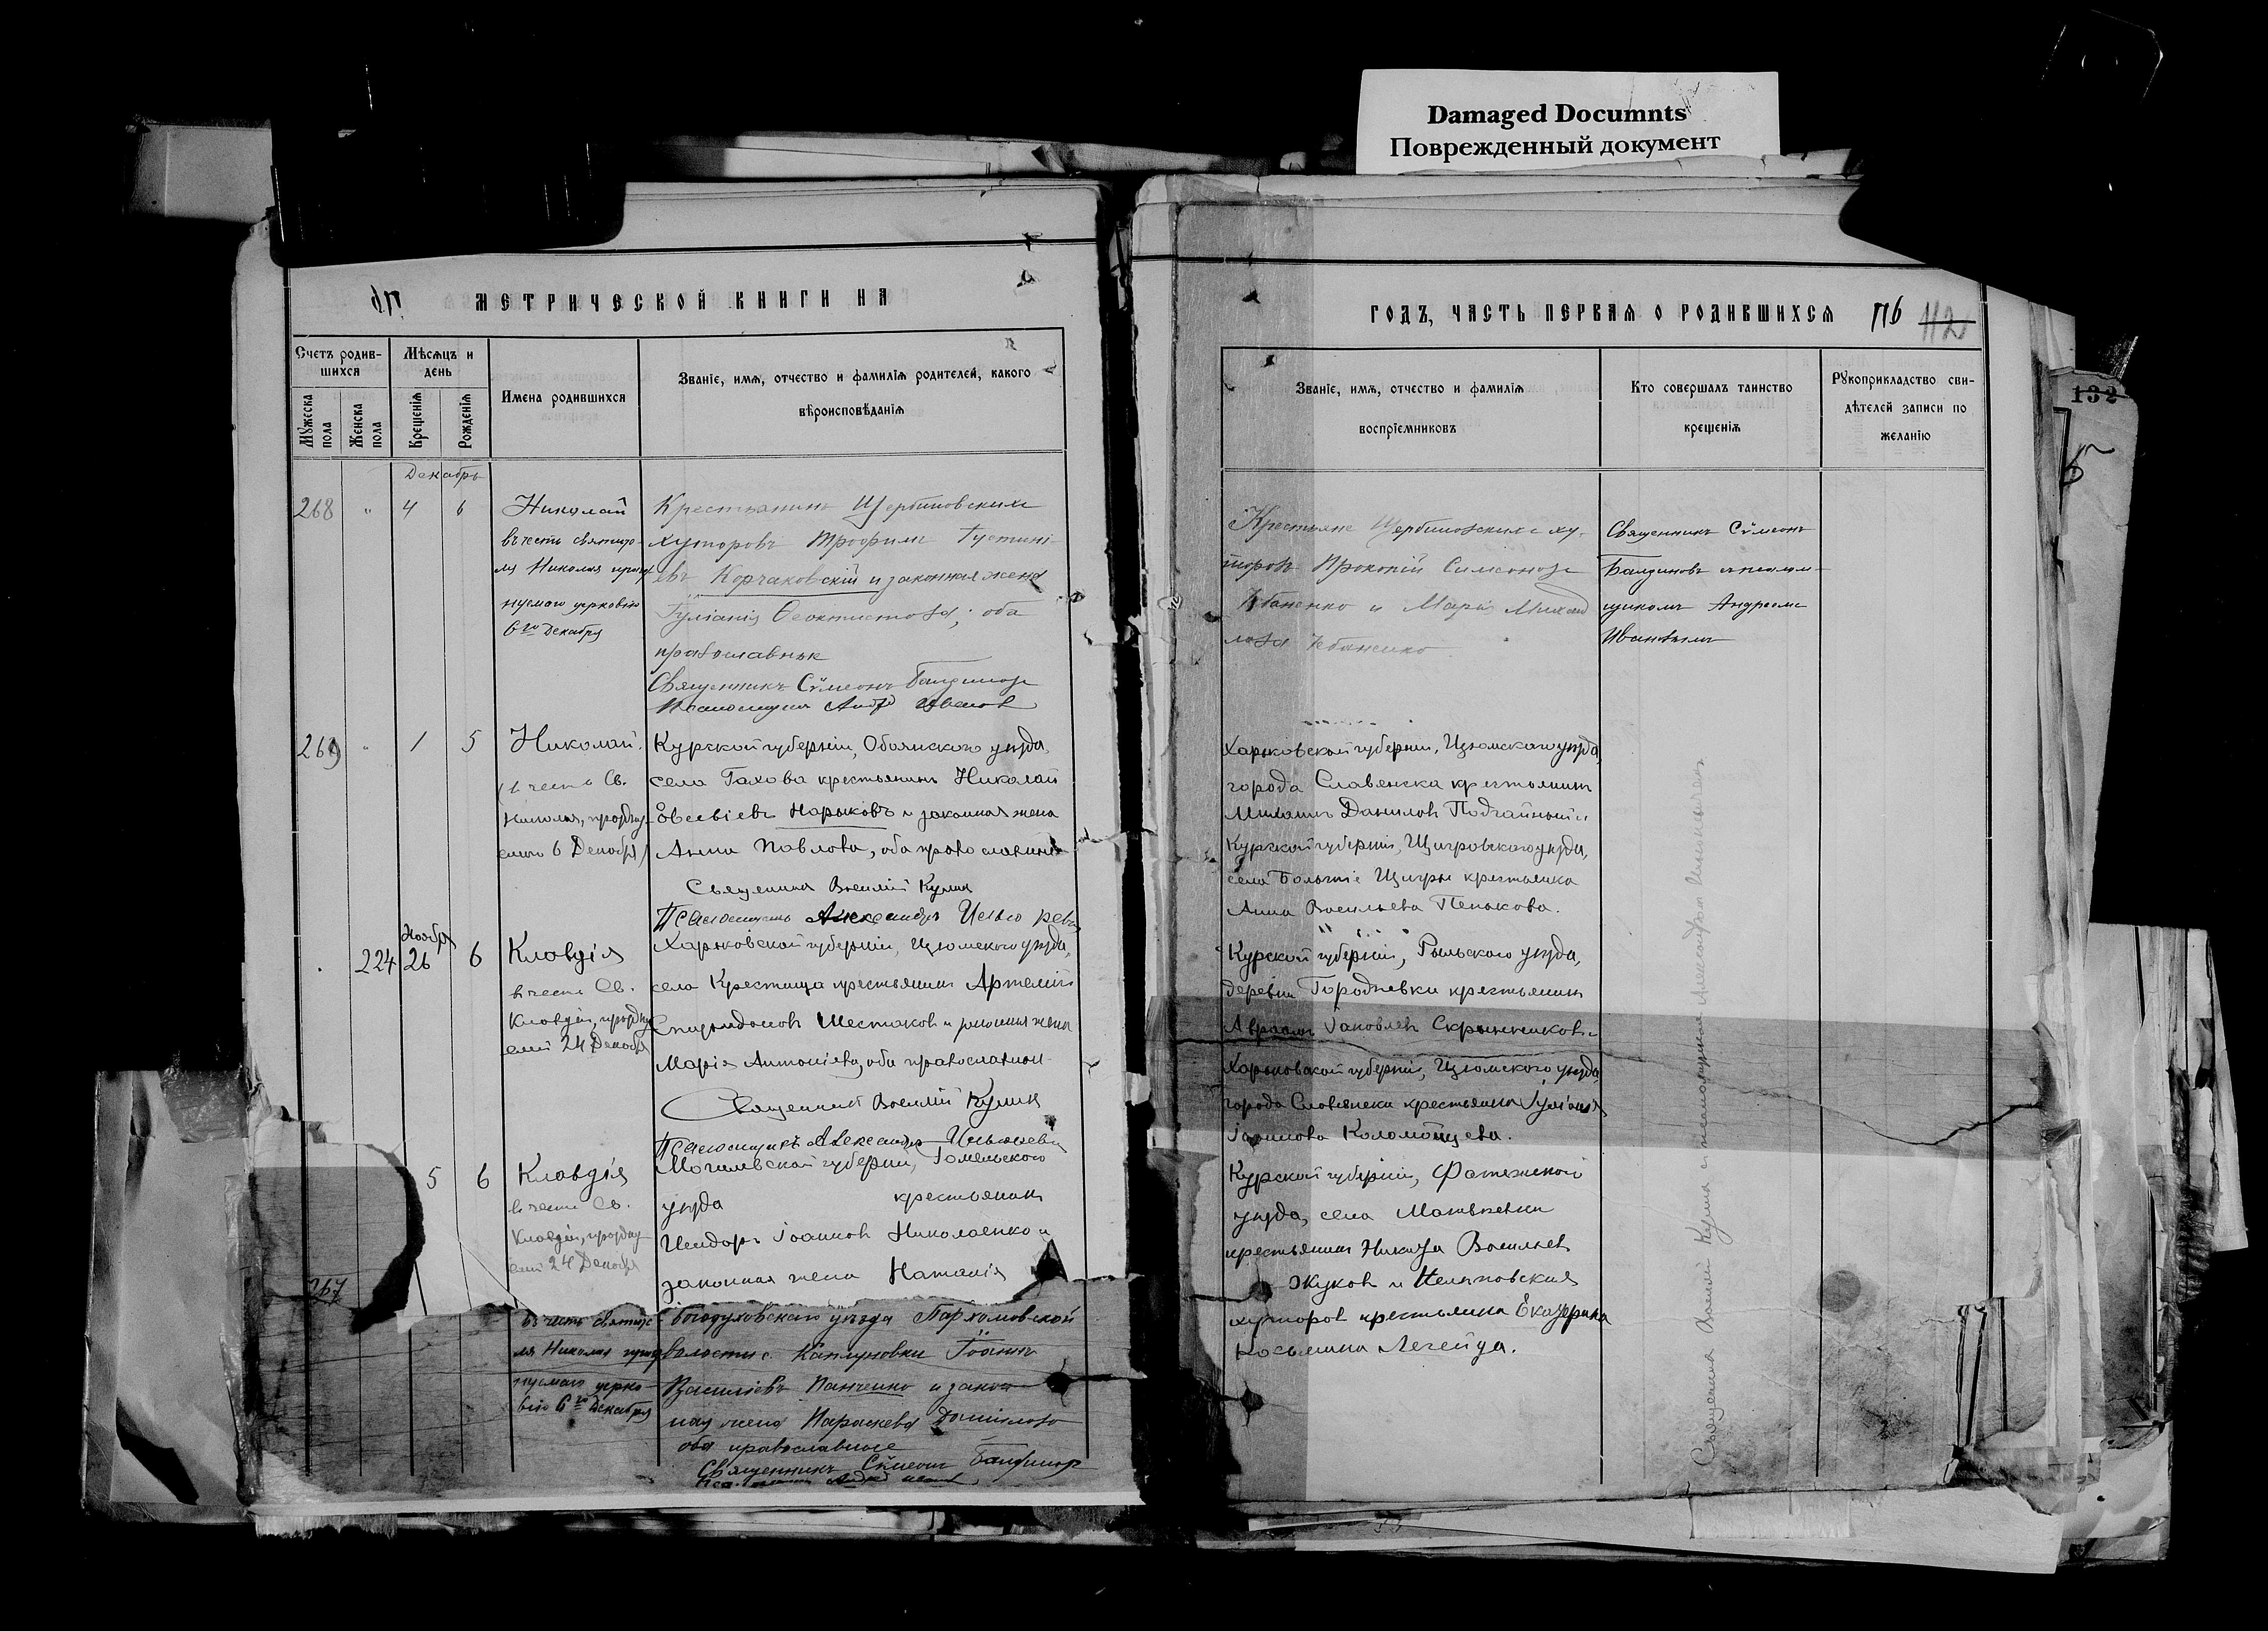 Damaged Documnts
Поврежденный документ
МЕТРИЧЕСКОЙ КНИГИ НА
Счетъ родив-
шихся
Мѣсяцъ и
день
Мужеска
пола
Женска
пола
Крещенія
Рожденія
Имена родившихся
Званіе, имя, отчество и фамилія родителей, какого
вѣроисповѣданія
Декабрь
268 " 4 6
Николай
въ честь святите-
ля Николая празд
нуемаго церковію
6го Декабря
Крестьянинъ Щербиновскихъ
хуторовъ Трофимъ Густині-
евъ Корчаковскій и законная жена
Іуліанія Ѳеоктистова; оба
православные
Священникъ Сѵмеонъ Балдинов
Псаломщикъ Андр Иванов
269 " 1 5
Николай
(в честь Св.
Николая, праздну-
емаго 6 Декабря)
Курской губерніи, Обоянскаго уѣзда,
села Гахова крестьянинъ Николай
Евсевіевъ Нарыковъ и законная жена
Анна Павлова, оба православные
Священникъ Василій Кулик
Псаломщикъ Александръ
Ноября
224 26 6
Клавдія
в честь Св.
Клавдіи, праздну
емой 24 Декабря
Харьковской губерніи, Изюмскаго уѣзда,
села Крестища крестьянинъ Артемій
Спиридоновъ Шестаков и законная жена
Марія Антоніева, оба православные
Священникъ Василій Кулик
Псаломщикъ Александръ
5 6
Клавдія
в честь Св.
Клавдіи, праздну
емой 24 Декабря
Могилевской губерніи, Гомельского
уѣзда крестьянин
Исидоръ Іоаннов Николаенко и
законная жена Наталія
267
въ честь святите
ля Николая празд
нуемаго церко-
вію 6го Декабря
Богодуховскаго уѣзда Пархомовской
волости с. Каплуновки Іоаннъ
Василіевъ Панченко и закон
ная жена Параскева Даніилова
оба православные
Священникъ Сѵмеонъ Балдинов
ГОДЪ, ЧАСТЬ ПЕРВАЯ О РОДИВШИХСЯ
116 112
132
Званіе, имя, отчество и фамилія
воспріемниковъ
Кто совершалъ таинство
крещенія
Рукоприкладство сви-
дѣтелей записи по
желанію
Крестьяне Щербиновскихъ ху-
торовъ Прокопій Симеонов
и Марія Михаи
лова
Священникъ Сѵмеонъ
Балдиновъ с псалом-
щикомъ Андреемъ
Ивановымъ
Харьковской губерніи, Изюмскаго уѣзда,
города Славянска крестьянинъ
Данилов Подгайный и
Курской губерніи, Щигровскаго уѣзда,
села Большіе Щигры крестьянка
Анна Васильева Пенькова.
Курской губерніи, Рыльскаго уѣзда,
деревни Городневки крестьянин
Авраам Іаковлев Скрынников и
Харьковской губерніи, Изюмского уѣзда,
города Славянска крестьянка Іуліанія
Коломойцева.
Курской губерніи, Фатежской
уѣзда, села
крестьянинъ Никита Васильев
Жуков и
хуторов крестьянка Екатерина
Косьмина Легейда.
Священник Василій Кулик с псаломщиком Александром